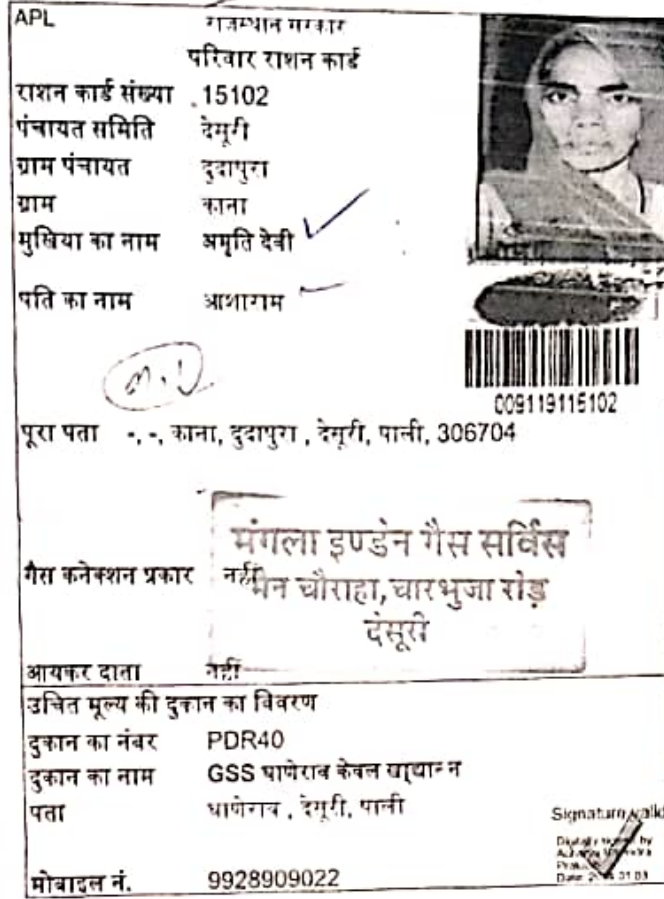 APL राजस्थान सरकार
परिवार राशन कार्ड
राशन कार्ड संख्या 15102
पंचायत समिति देसूरी
ग्राम पंचायत दुदापुरा
ग्राम काना
मुखिया का नाम अमृति देवी
पति का नाम आशाराम
009119115102
पूरा पता -, -, काना, दुदापुरा , देसूरी, पाली, 306704
मंगला इण्डेन गैस सर्विस
गैस कनेक्शन प्रकार नहीं
मेन चौराहा, चारभुजा रोड़
देसूरी
आयकर दाता नहीं
उचित मूल्य की दुकान का विवरण
दुकान का नंबर PDR40
दुकान का नाम GSS घाणेराव केवल खाद्यान्न
पता घाणेराव , देसूरी, पाली
Signature valid
Digitally signed by
Date:
मोबाइल नं. 9928909022